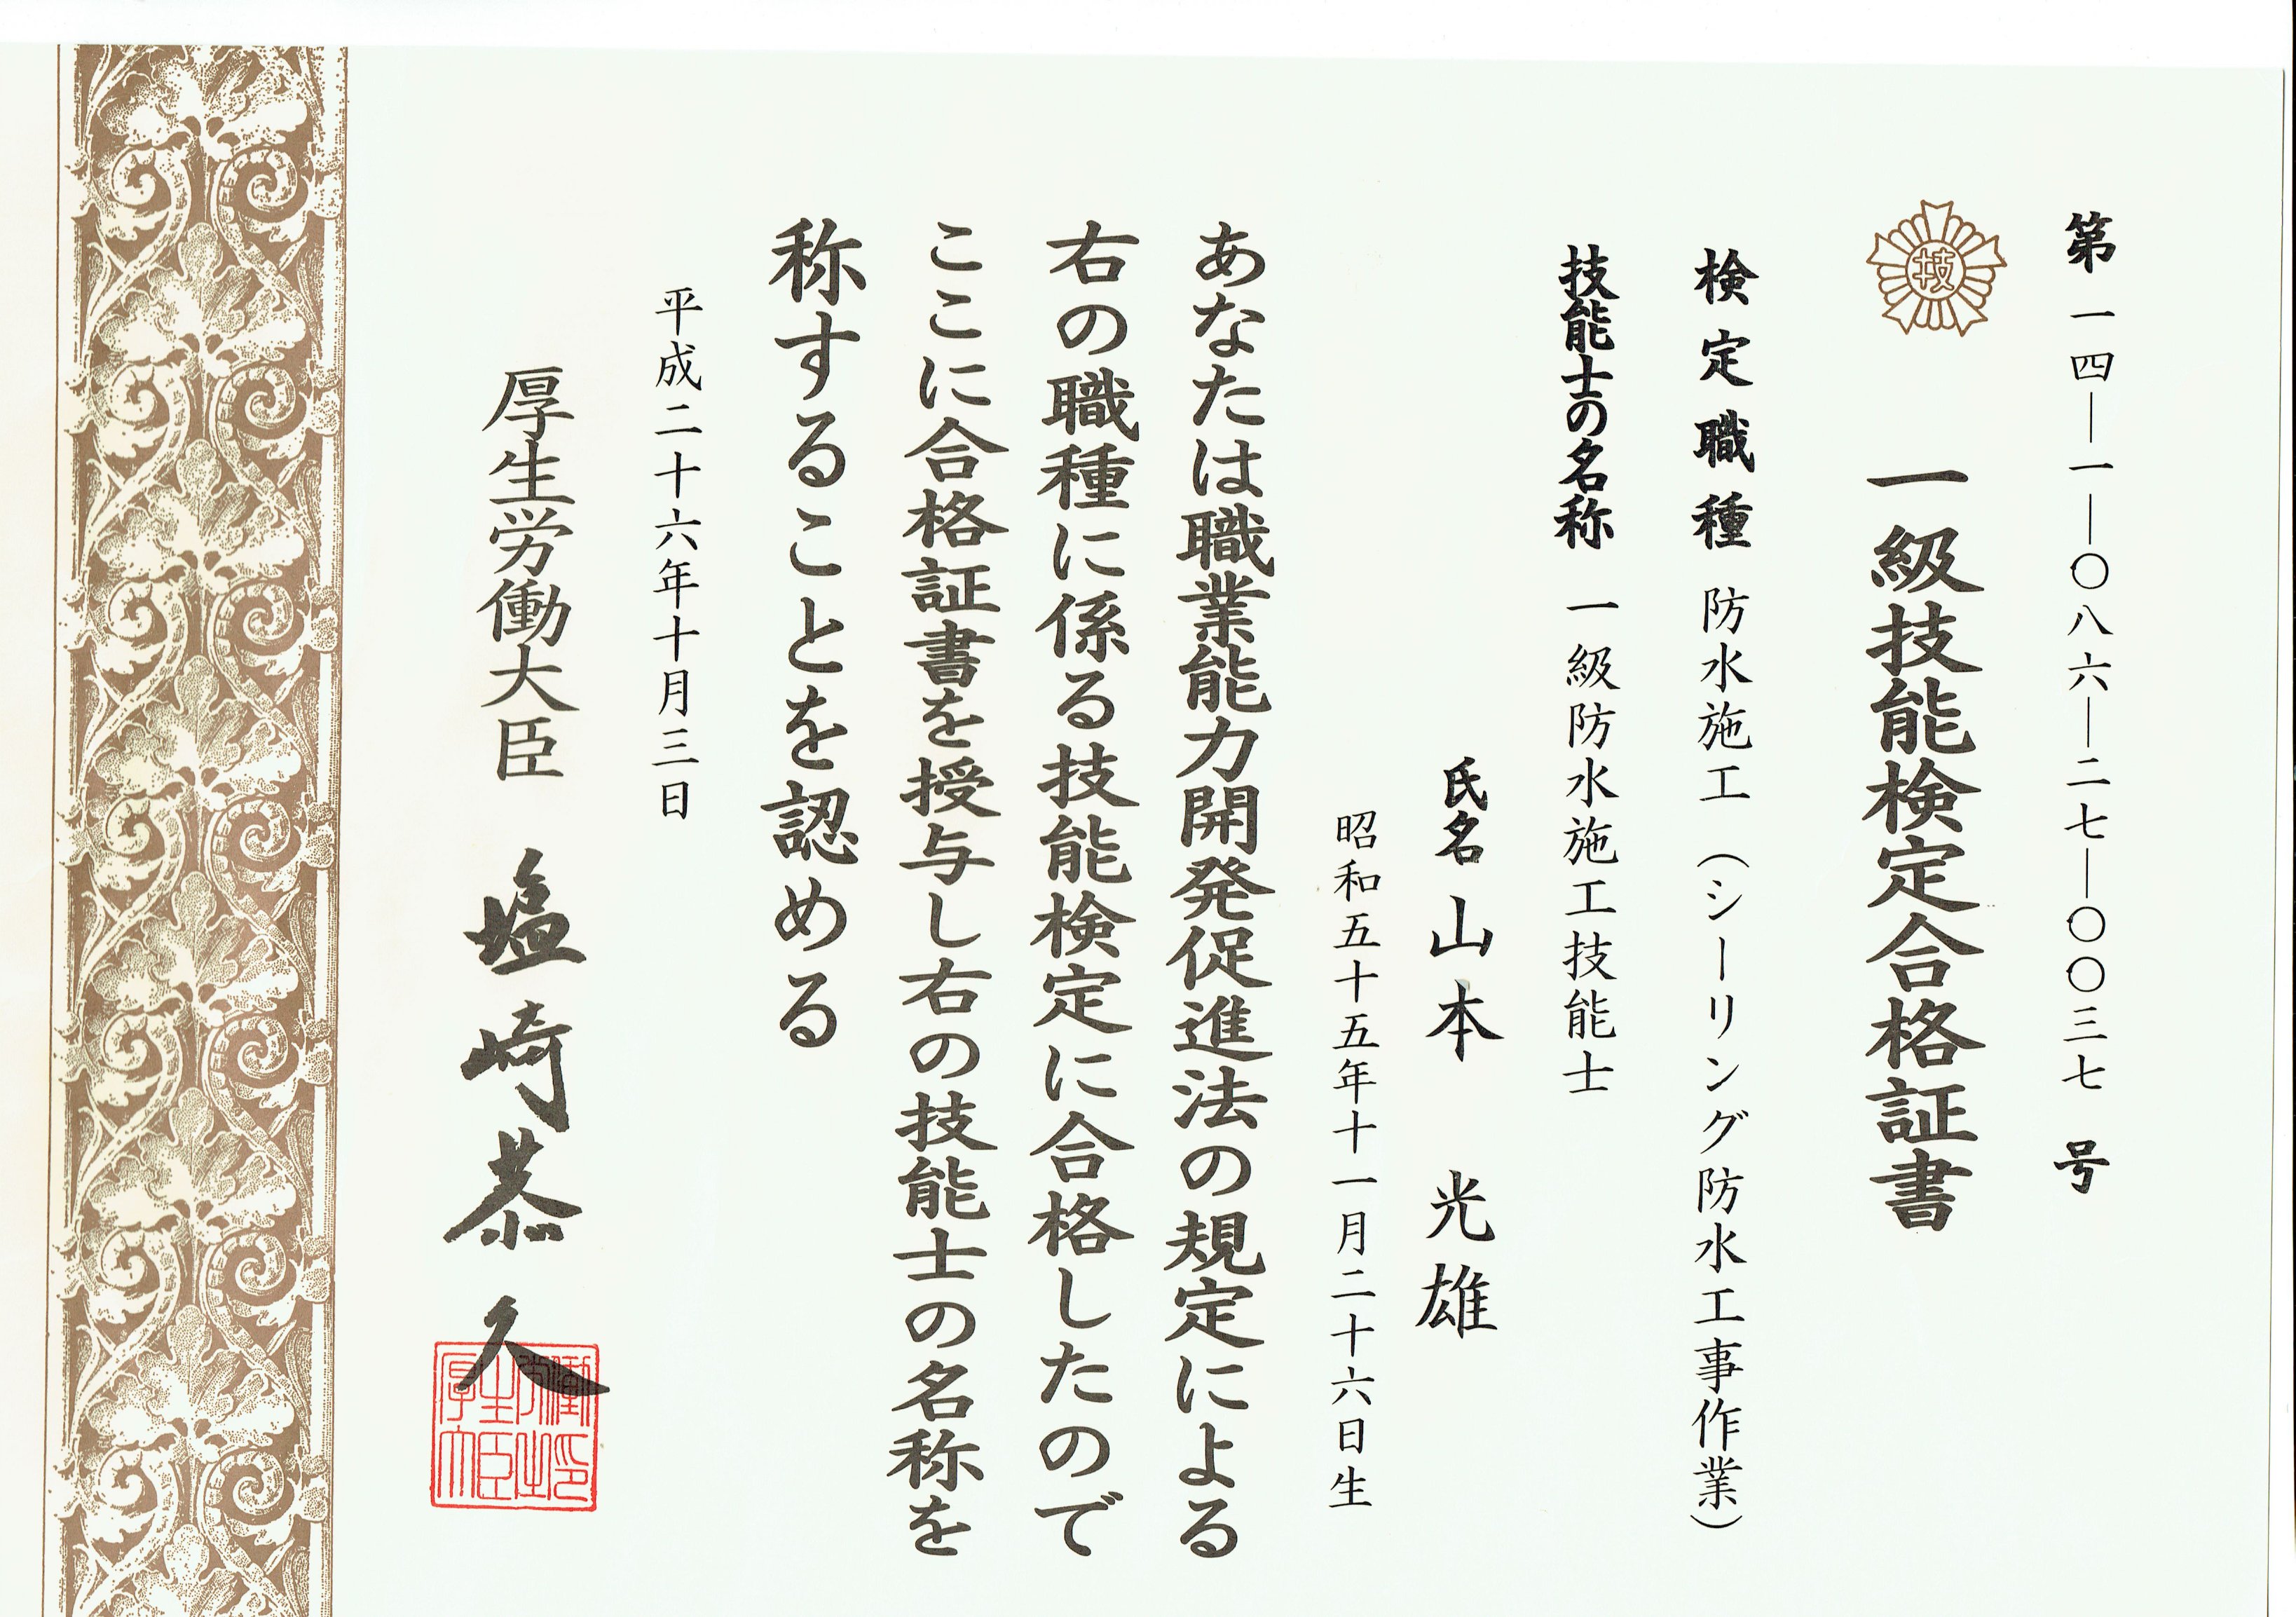 第一四―一―〇八六―二七―〇〇三七 号
技
一級技能検定合格証書
検定職種 防水施工（シーリング防水工事作業）
技能士の名称 一級防水施工技能士
氏名 山本 光雄
昭和五十五年十一月二十六日生
あなたは職業能力開発促進法の規定による
右の職種に係る技能検定に合格したので
ここに合格証書を授与し右の技能士の名称を
称することを認める
平成二十六年十月三日
厚生労働大臣 塩崎恭久
厚生労働大臣之印